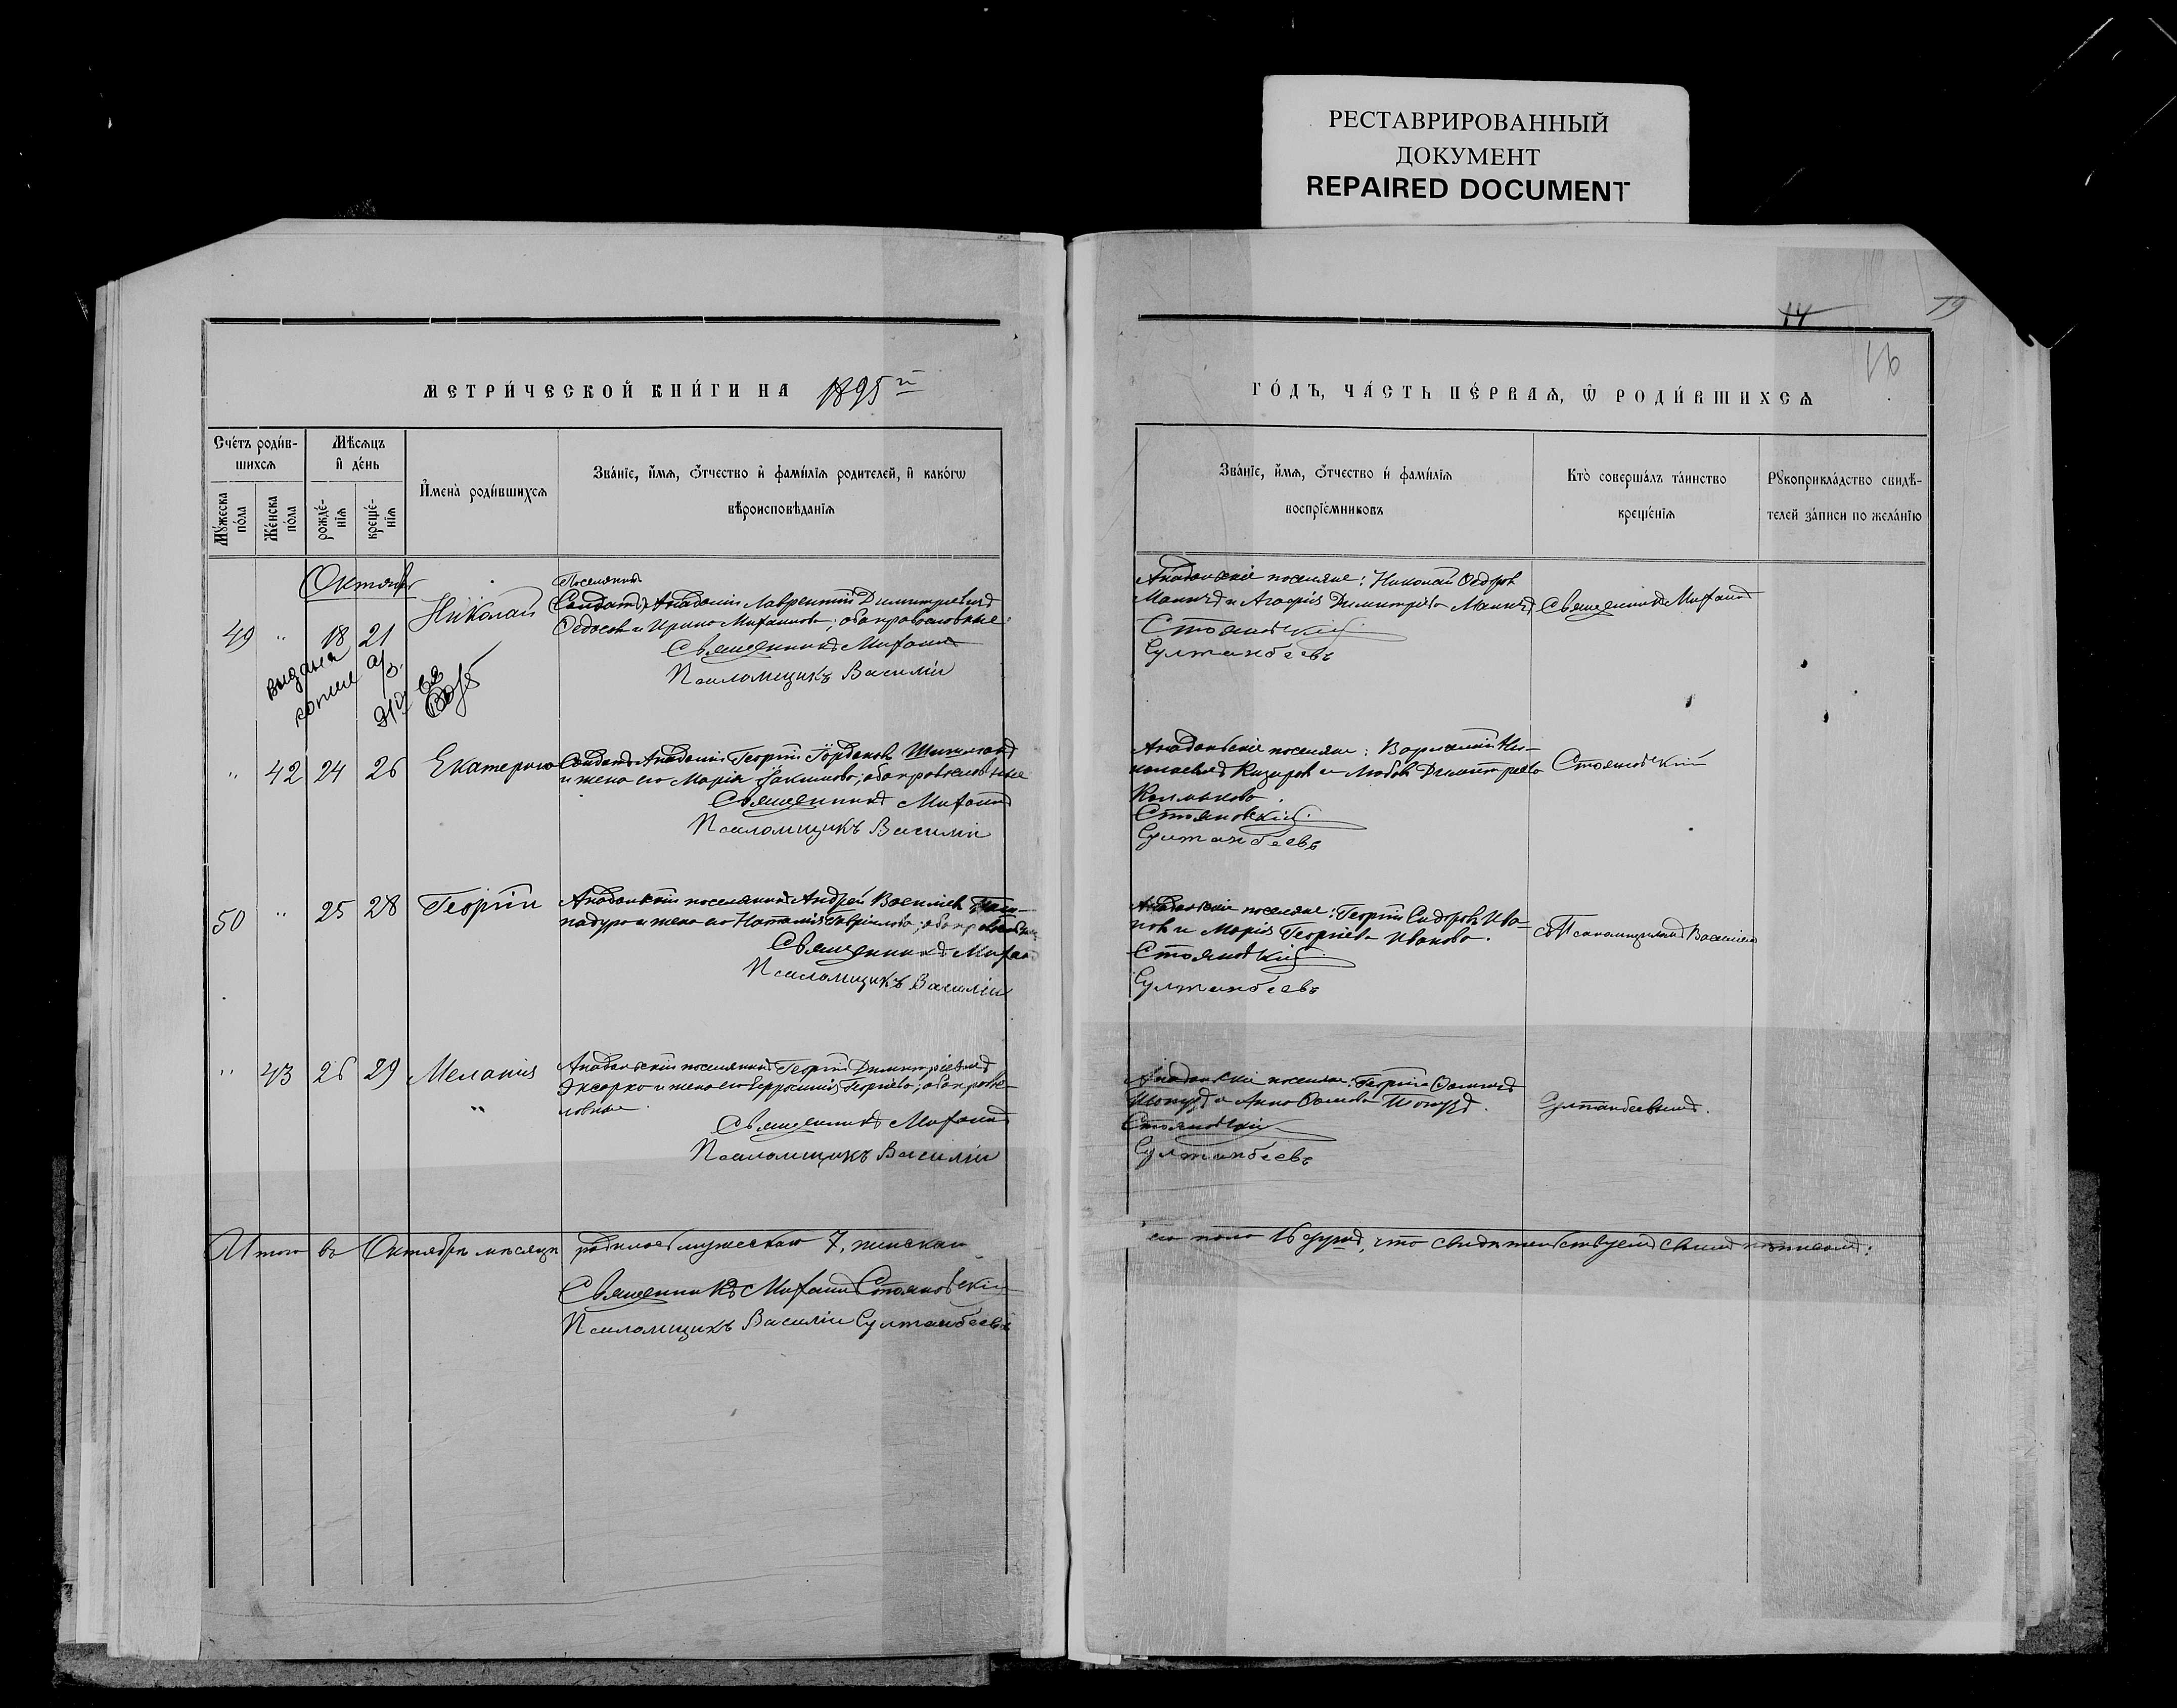 РЕСТАВРИРОВАННЫЙ
ДОКУМЕНТ
REPAIRED DOCUMENT
14
19
16
МЕТРИ́ЧЕСКОЙ КНИ́ГИ НА 1895й
ГО́ДЪ, ЧА́СТЬ ПЕ́РВАѦ, Ѡ РОДИ́ВШИХСѦ
Сче́тъ роди́в-
шихсѧ
Мꙋ́жеска по́ла
Же́нска по́ла
Мѣ́сѧцъ и де́нь
рожде́-
нїѧ
креще́-
нїѧ
И҆мена̀ роди́вшихсѧ
Зва́нїе, и҆́мѧ, ѻ҆́тчество и҆ фами́лїѧ родителей, и҆ како́гѡ
вѣроисповѣ́данїѧ
Зва́нїе, и҆́мѧ, ѻ҆́тчество и҆ фами́лїѧ
воспрїе́мниковъ
Кто̀ соверша́лъ та́инство
креще́нїѧ
Рꙋкоприкла́дство свидѣ́-
телей за́писи по жела́нїю
Октябрь
49 " 18 21 Николай
Поселянинъ
Анадоліи Лаврентій Димитріевичъ
Ѳедосов и Ирина Михаилова; оба православные
Священникъ Михаилъ
Псаломщикъ Василій
выдана
копія
Анадольскіе поселяне: Николай Ѳедоров
и Агафія Димитріева
Стояновскій
Султанбеевъ
Священникъ Михаилъ
" 42 24 26 Екатерина
Солдатъ Анадоліи Георгій
и жена его Марія Іакимова; оба православные
Священникъ Михаилъ
Псаломщикъ Василій
Анадольскіе поселяне: Варламій Ни-
колаевичъ и Любовь Димитріева
Стояновскій
Султанбеевъ
Стояновскій
50 " 25 28 Георгій
Анадольскій поселянинъ Андрей Васильев
и жена его Наталія Гавріилова; оба православные
Священникъ Михаилъ
Псаломщикъ Василій
Анадольскіе поселяне: Георгій Сидоровъ Ива-
новъ и Марія Георгіева Иванова.
Стояновскій
Султанбеевъ
съ Псаломщикомъ Василіемъ
" 43 26 29 Меланія
"
Анадольскій поселянинъ Георгій Димитріевичъ
и жена его Ефросинія Георгіева; оба правос-
лавные.
Священникъ Михаилъ
Псаломщикъ Василій
Анадольскіе поселяне: Георгій
и Анна
Стояновскій
Султанбеевъ
Султанбеевымъ.
Итого въ Октябрѣ мѣсяцѣ родилось мужескаго 7, женска-
го пола 16 душъ, что свидѣтельствуемъ своимъ подписомъ:
Священникъ Михаилъ Стояновскій
Псаломщикъ Василій Султанбеевъ